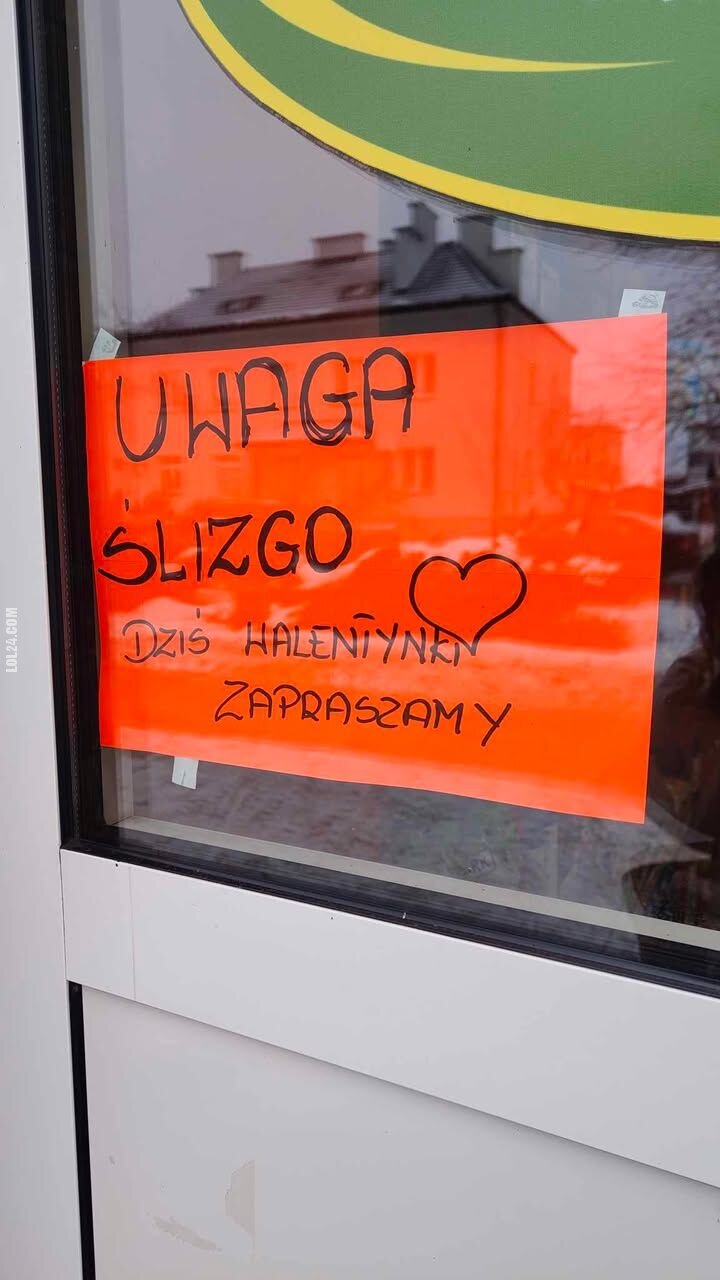 UWAGA
ŚLIZGO
DZIŚ WALENTYNKI
ZAPRASZAMY
LOL24.COM